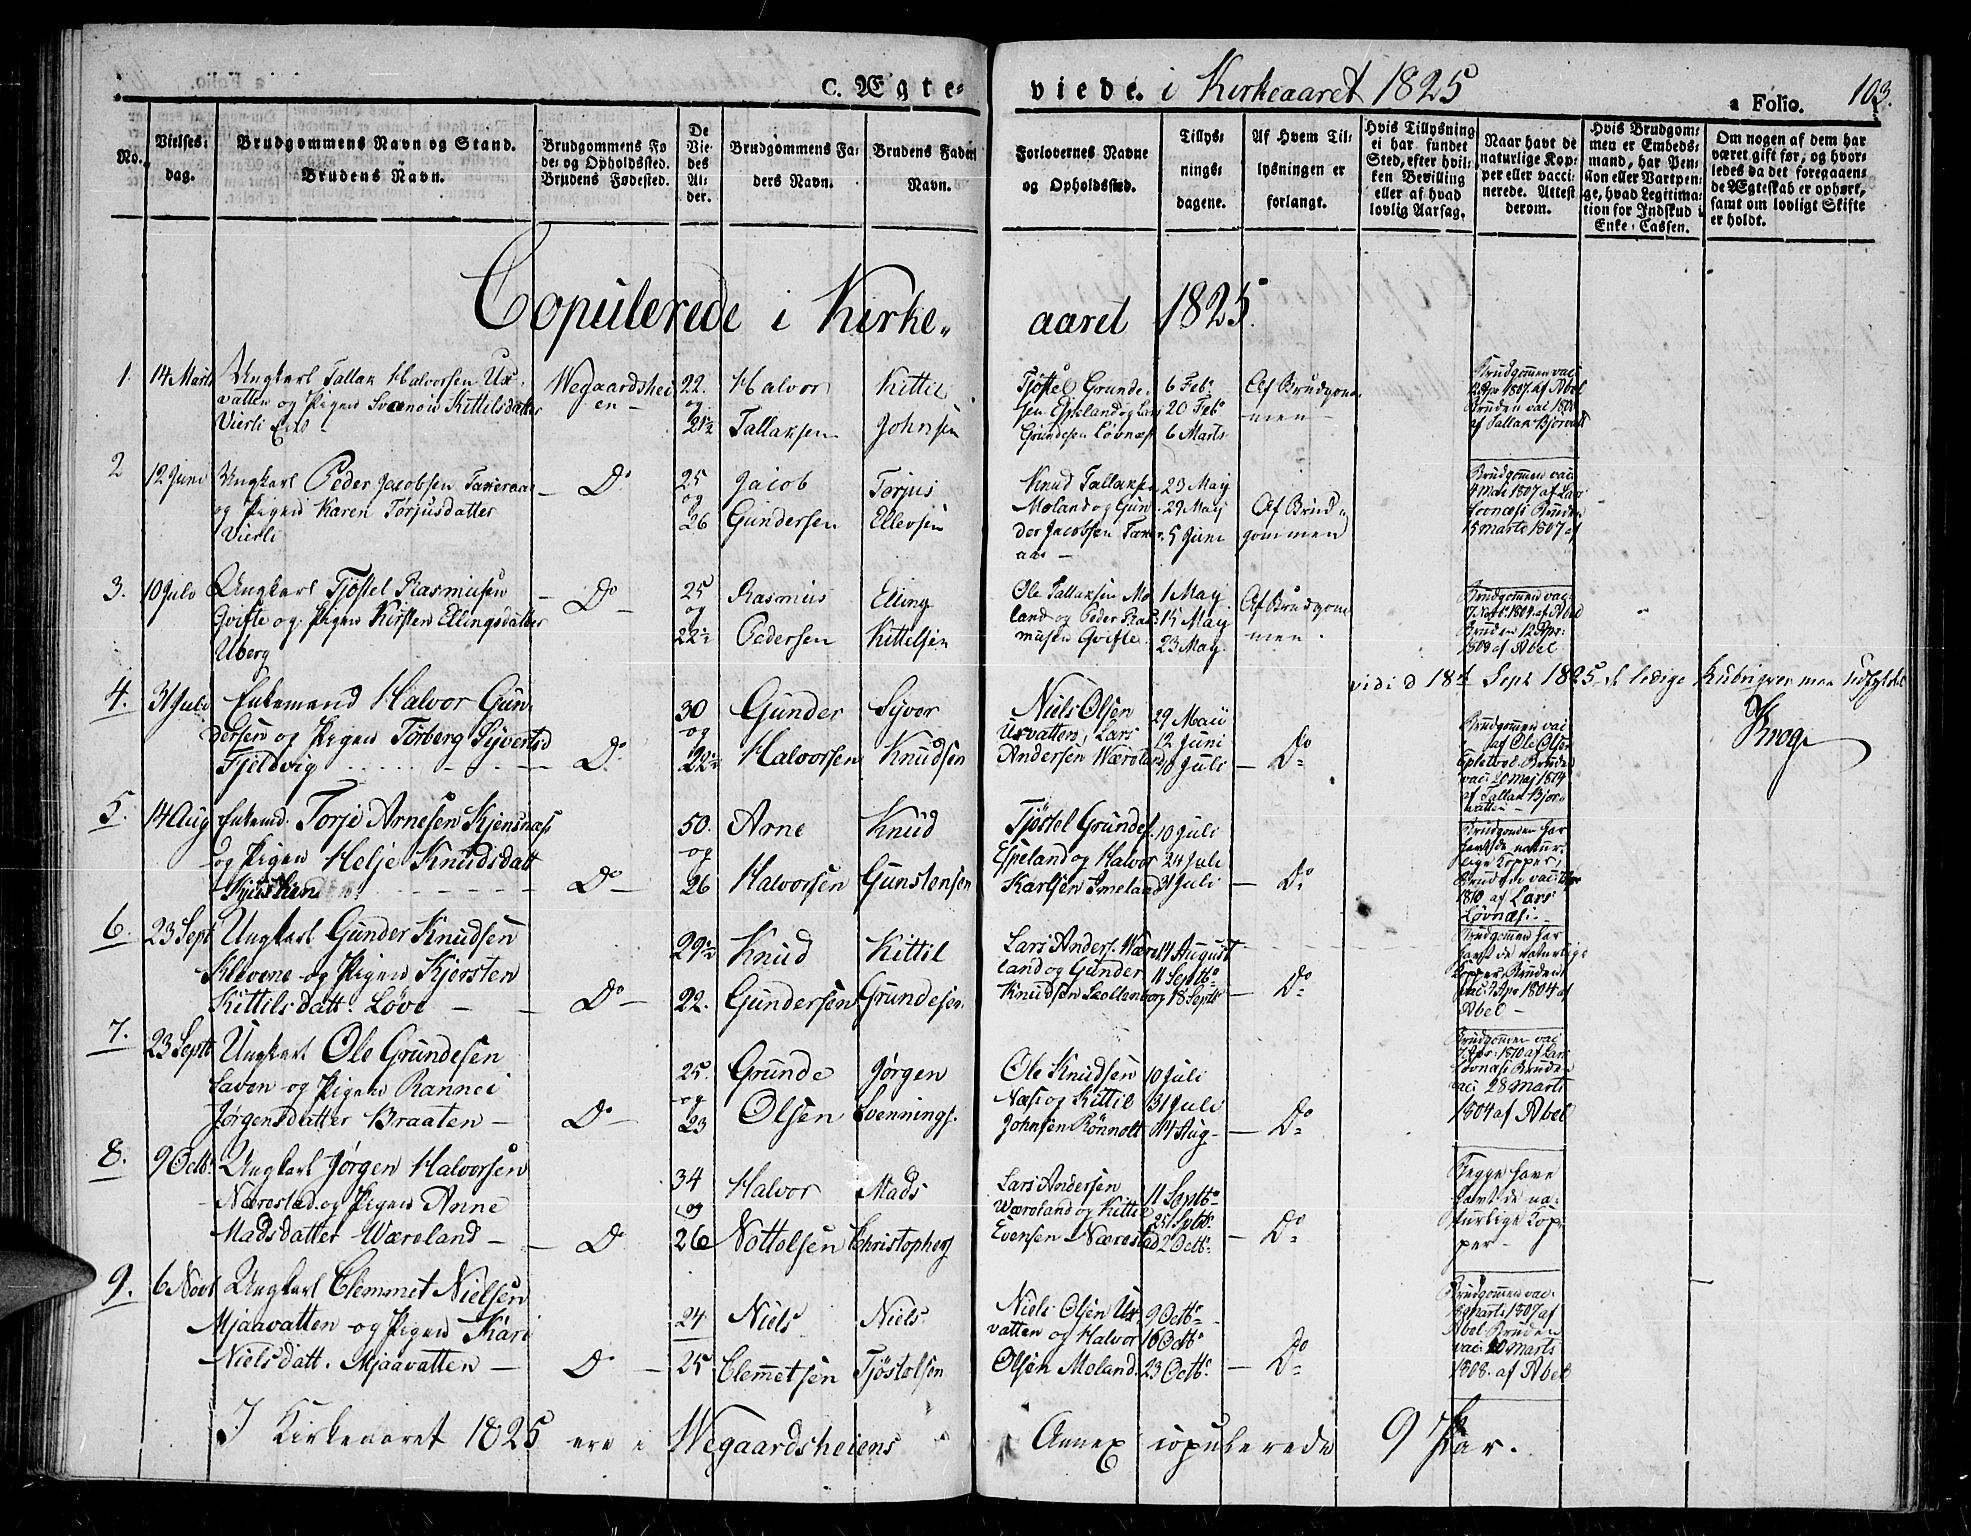 C. Ægte=
viede. i Kirkeaaret 1825
a Folio. 103.
No.
Vielses=
dag.
Brudgommens Navn og Stand.
Brudens Navn.
Brudgommens Fø
de= og Opholdssted.
Brudens Fødested.
De
Vie=
des
Al=
der.
Brudgommens Fa=
ders Navn.
Brudens Faders
Navn.
Forlovernes Navne
og Opholdssted.
Tillys=
nings=
dagene.
Af Hvem Til=
lysningen er
forlangt.
Hvis Tillysning
ei har fundet
Sted, efter hvil=
ken Bevilling
eller af hvad
lovlig Aarsag.
Naar havt de
naturlige Kop=
per eller vacci=
nerede. Attest
derom.
Hvis Brudgom=
men er Embeds=
mand, har Pen=
sion eller Vartpen=
ge, hvad Legitima=
tion for Indskud i
Enke=Cassen.
Om nogen af dem har
været gift før, og hvor=
ledes da det foregaaen=
de Ægteskab er ophørt,
samt om lovligt Skifte
er holdt.
Copulerede i Kirke„ aaret 1825.
1. 14 Marts
Ungkarl Tallak Halvorsen Ux=
vatten og Pigen Svenoie Kittilsdatter
Vierli
Wegaardshei
en
22.
og
21½
Halvor
Tallaksen
Kittil
Johnsen
Tjøstel Grunde
sen Espeland og Lars
Grundesen Løvnæs
6 Feb.
20 Feb.
6 Marts
Af Brudgom
men
Brudgommen vac:
1807. af Abel
Bruden vac
af Tallak Bjorvatt
2 12 Juni
Ungkarl Peder Jacobsen Taxeraas
og Pigen Karen Torjusdatter
Vierli
Do
25
og
26
Jacob
Gundersen
Torjus
Ellevsen
Knud Tallaksen
Moland og Gun
der Jacobsen Taxer
aas
23 May
29 May
5 Juni
Af Brud„
gommen
Brudgommen vac
1807 af Lars
Lovnæsi Bruden
15 marts 1807 af
3. 10 Juli
Ungkarl Tjøstel Rasmusen
Gvifte og Pigen Kirsten Ellingsdatter
Uberg
Do
25
og
22½
Rasmus
Pedersen
Elling
Kittilsen
Ole Tallaksen Mo
land og Peder Ras=
musen Gvifte
1 May
15 May
23 May
Af Brudgom
men.
Brudgommen vac:
af Abel
Bruden 12 Apr:
1809 af Abel
vidi d 18de Sept 1825 de ledige Rubriqver maa udfyldes
Krog
4. 31 Juli
Enkemand Halvor Gun
dersen og Pigen Torberg Syvertsd
Fjeldvig
Do
30
og
22½
Gunder
Halvorsen
Syver
Knudsen
Niels Olsen
Uxvatten, Lars
Andersen Wæroland
29 Maii
12 Juni
10 Juli
Do
Brudgommen vac:
af Ole Olsen
Bruden
vac: 20 Maj 1814
af Tallak Bjor
vatten
5. 14 Aug
Enkemd. Torje Arnesen Kjensnæs
og Pigen Helje Knudsdatt
Do
50.
og
26
Arne
Halvorsen
Knud
Gunstensen
Tjøstel Grundes.
Espeland og Halvor
Karlsen Imeland
10 Juli
24 Juli
31 Juli
Do
Brudgommen har
havt de natur=
lige Kopper,
Bruden vac:
1810 af Lars
Løvnæsi.
6. 23 Sept
Ungkarl Gunder Knudsen
Klevene og Pigen Kjersten
Kittilsdatt. Løve
Do
29½
22.
Knud
Gundersen
Kittil
Grundesen
Lars Anders. Wære
land og Gunder
Knudsen Skollenborg
14 August
11 Septb.
18 Septb
Do
Brudgommen har
havt de naturlige
Kopper, Bruden
vac: Apr 1804 af
Abel
7. 23 Septb
Ungkarl Ole Grundesen
Savon og Pigen Rannei
Jørgensdatter Braaten
Do
25.
og
23
Grunde
Olsen
Jørgen
Svennings.
Ole Knudsen
Næs og Kittil
Johnsen Rønnott
10 Juli
31 Juli
14 Aug
Do
Brudgommen vac
7 Apr: 1810 af Lars
Løvnæsi Bruden
vac: 28 marts
1804 af Abel
8. 9 Octb.
Ungkarl Jørgen Halvorsen
Nærestad og Pigen Anne
Madsdatter Wæroland
Do
34
og
26
Halvor
Nottolsen
Mads
Christophers
Lars Andersen
Wæroland og Kittil
Evensen Nærestad
11 Septb.
25 Septb.
2 Octb.
Do
Begge have
havt de na=
turlige Kop=
per
9. 6 Novb
Ungkarl Clemmet Nielsen
Mjaavatten og Pigen Kari
Nielsdatt. Mjaavatten
Do
24
25
Niels
Clemmetsen
Niels
Tjøstolsen
Niels Olsen Ux
vatten og Halvor
Olsen Moland
9 Octb
16 Octb
23 Octb.
Do
Brudgommen vac.
marts 1807 af
Abel Bruden
vac: 20 marts
1808. af Abel
I Kirkeaaret 1825 ere i Wegaardsheiens Annex copulerede 9 Par.